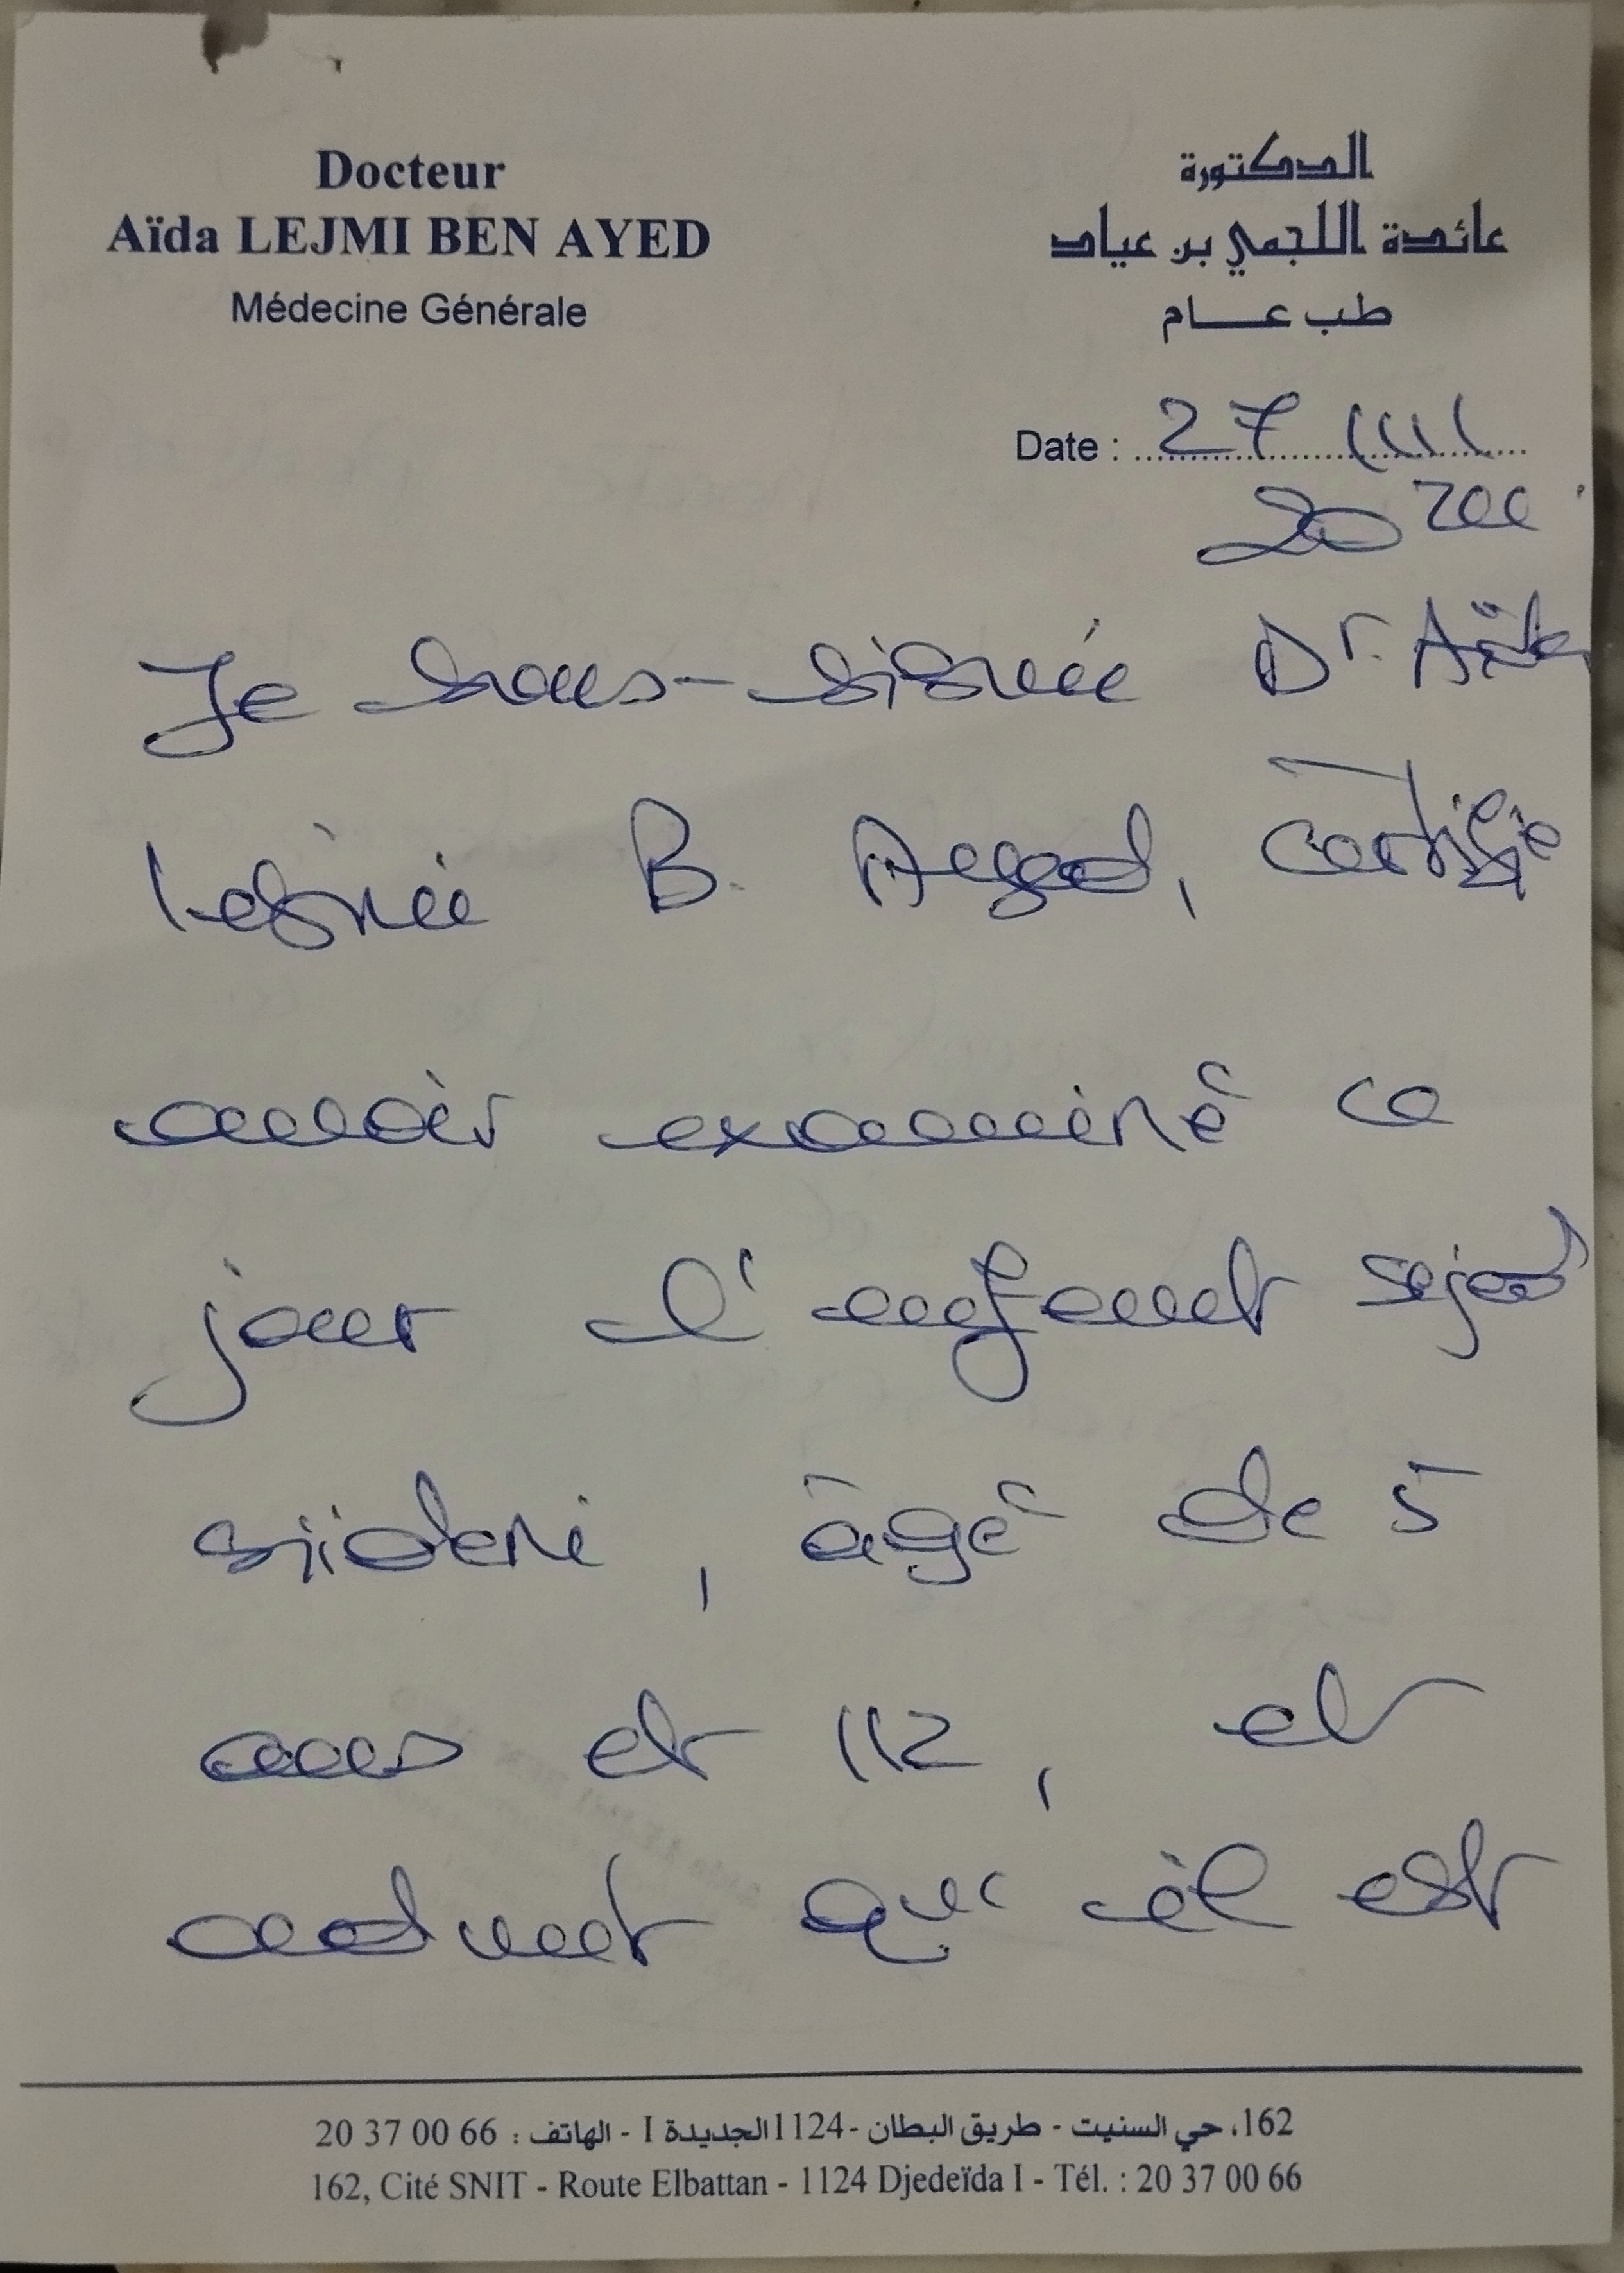 Docteur
Aïda LEJMI BEN AYED
Médecine Générale
الدكتورة
عائدة اللجمي بن عياد
طب عـــام
Date : 27
Je sous-signée Dr. Aïda
Lejmi B. Ayed, certifie
avoir examiné ce
jour l'enfant
âgé de 5
ans et 1/2, et
que il est
162، حي السنيت - طريق البطان -1124 الجديدة I - الهاتف : 66 00 37 20
162, Cité SNIT - Route Elbattan - 1124 Djedeïda I - Tél. : 20 37 00 66